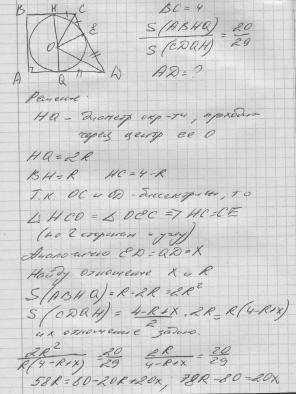 B H C
E
O
A Q D
BC = 4
S(ABHQ) / S(CDQH) = 20/29
AD = ?
Решение
HQ - диаметр окр-ти, проходит
через центр ее O
HQ = 2R
BH = R HC = 4-R
Т.к. OC и OD - биссектрисы, то
△HCO = △OEC => HC = CE
(по 2 сторонам и углу)
Аналогично ED = QD = X
Найду отношение X и R
S(ABHQ) = R·2R = 2R²
S(CDQH) = (4-R+X)/2 · 2R = R(4-R+X)
их отношение задано.
2R²/R(4-R+X) = 20/29 2R/4-R+X = 20/29
58R = 80-20R+20X, 78R-80 = 20X